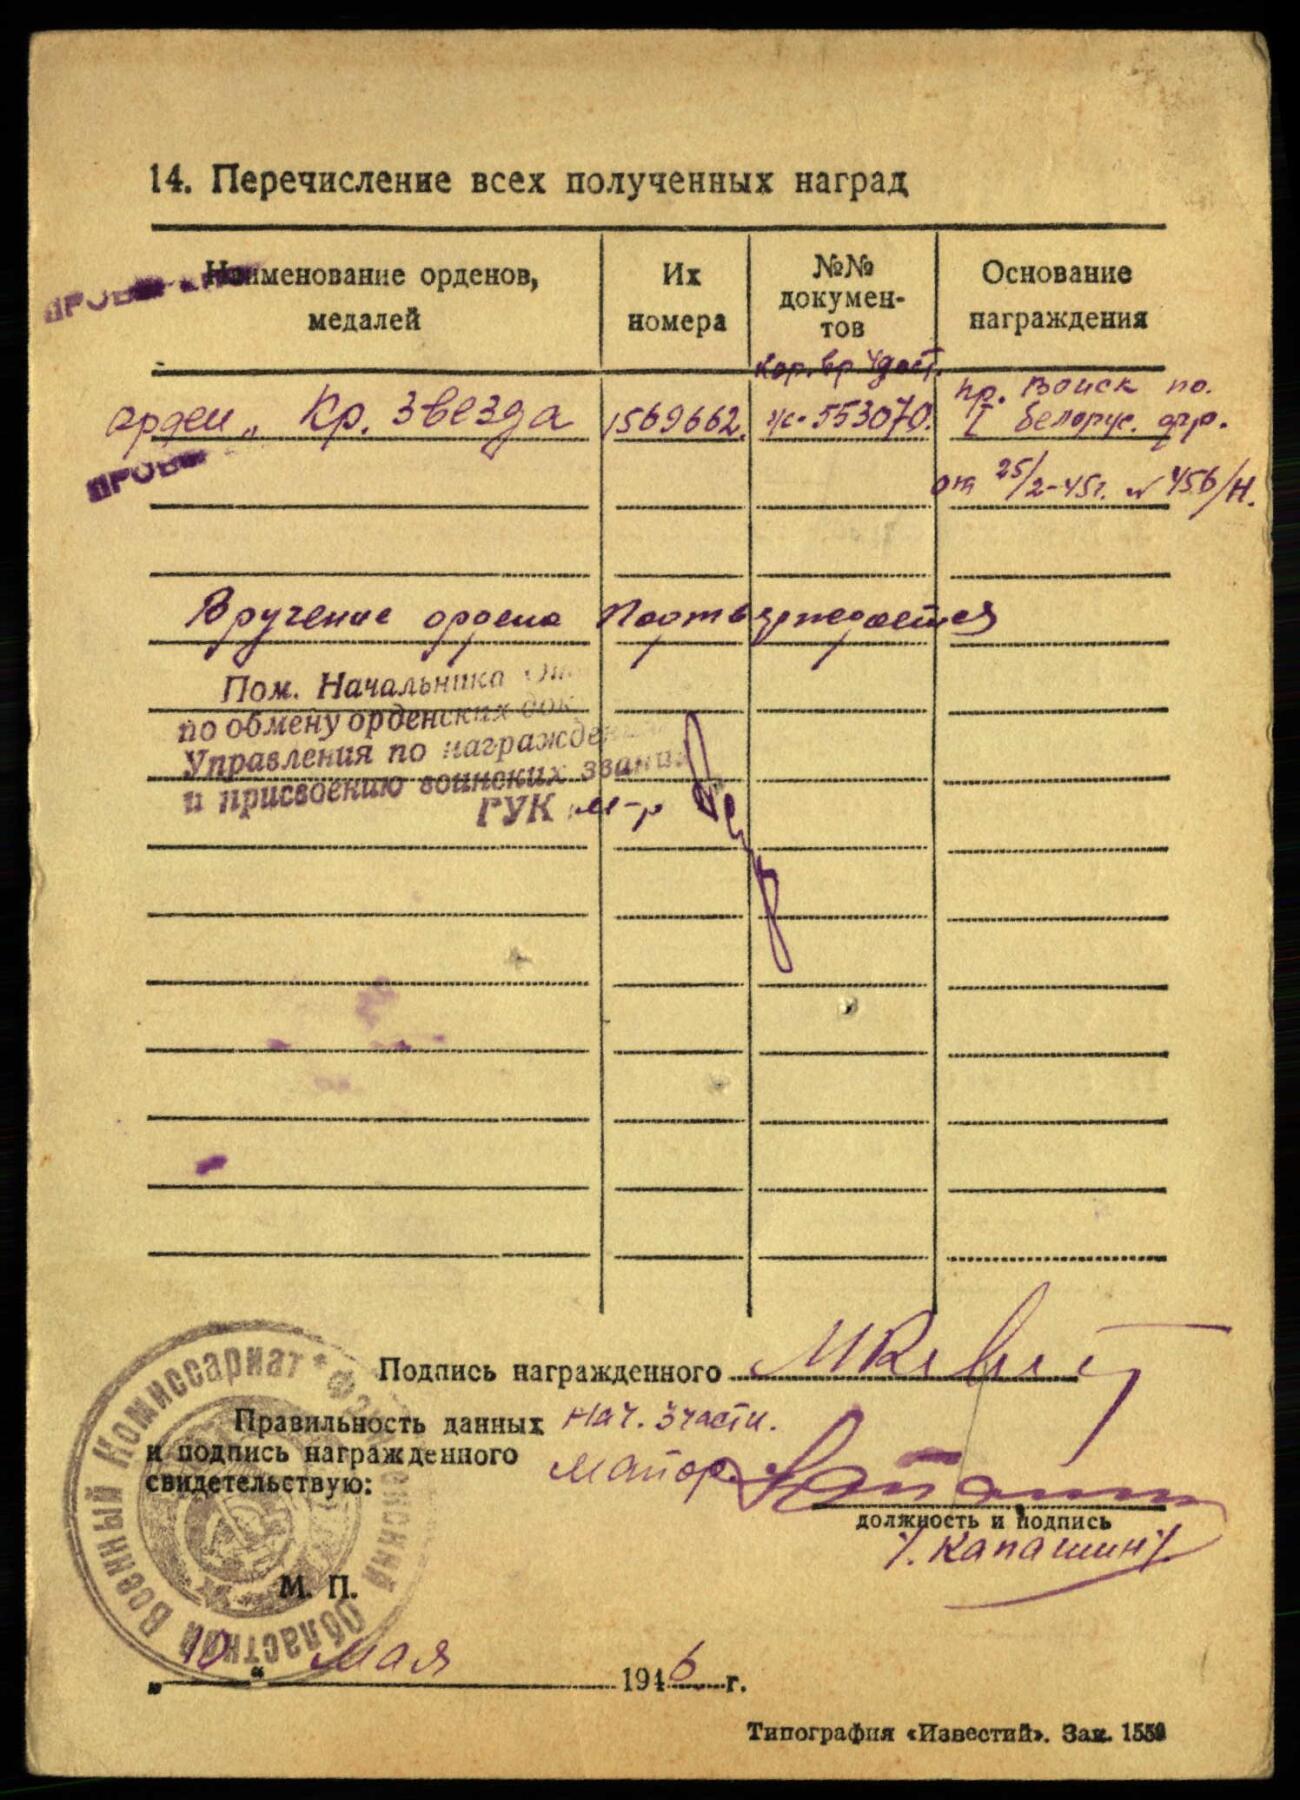 14. Перечисление всех полученных наград
Наименование орденов,
медалей
Их
номера
№№
докумен-
тов
Основание
награждения
Кор. вр. удост.
орден „Кр. Звезда
1569662.
Ж-553070.
пр. Войск по.
I белорус. фр.
от 25/2-45г. № 456/Н.
Вручение ордена Подтверждается
Пом. Начальника
по обмену орденских док
Управления по награжде
и присвоению воинских званий
ГУК м-р
Подпись награжденного
Правильность данных
и подпись награжденного
свидетельствую:
нач. 3 части.
майор
должность и подпись
/. Капашин/.
Областной Военный Комиссариат *
М. П.
„ 10 “ мая 1946 г.
Типография «Известий». Зак. 1559